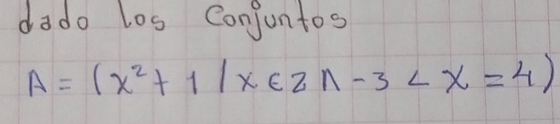 dado los Conjuntos
A = (x² + 1 / x ∈ Z ∧ -3 < x = 4)